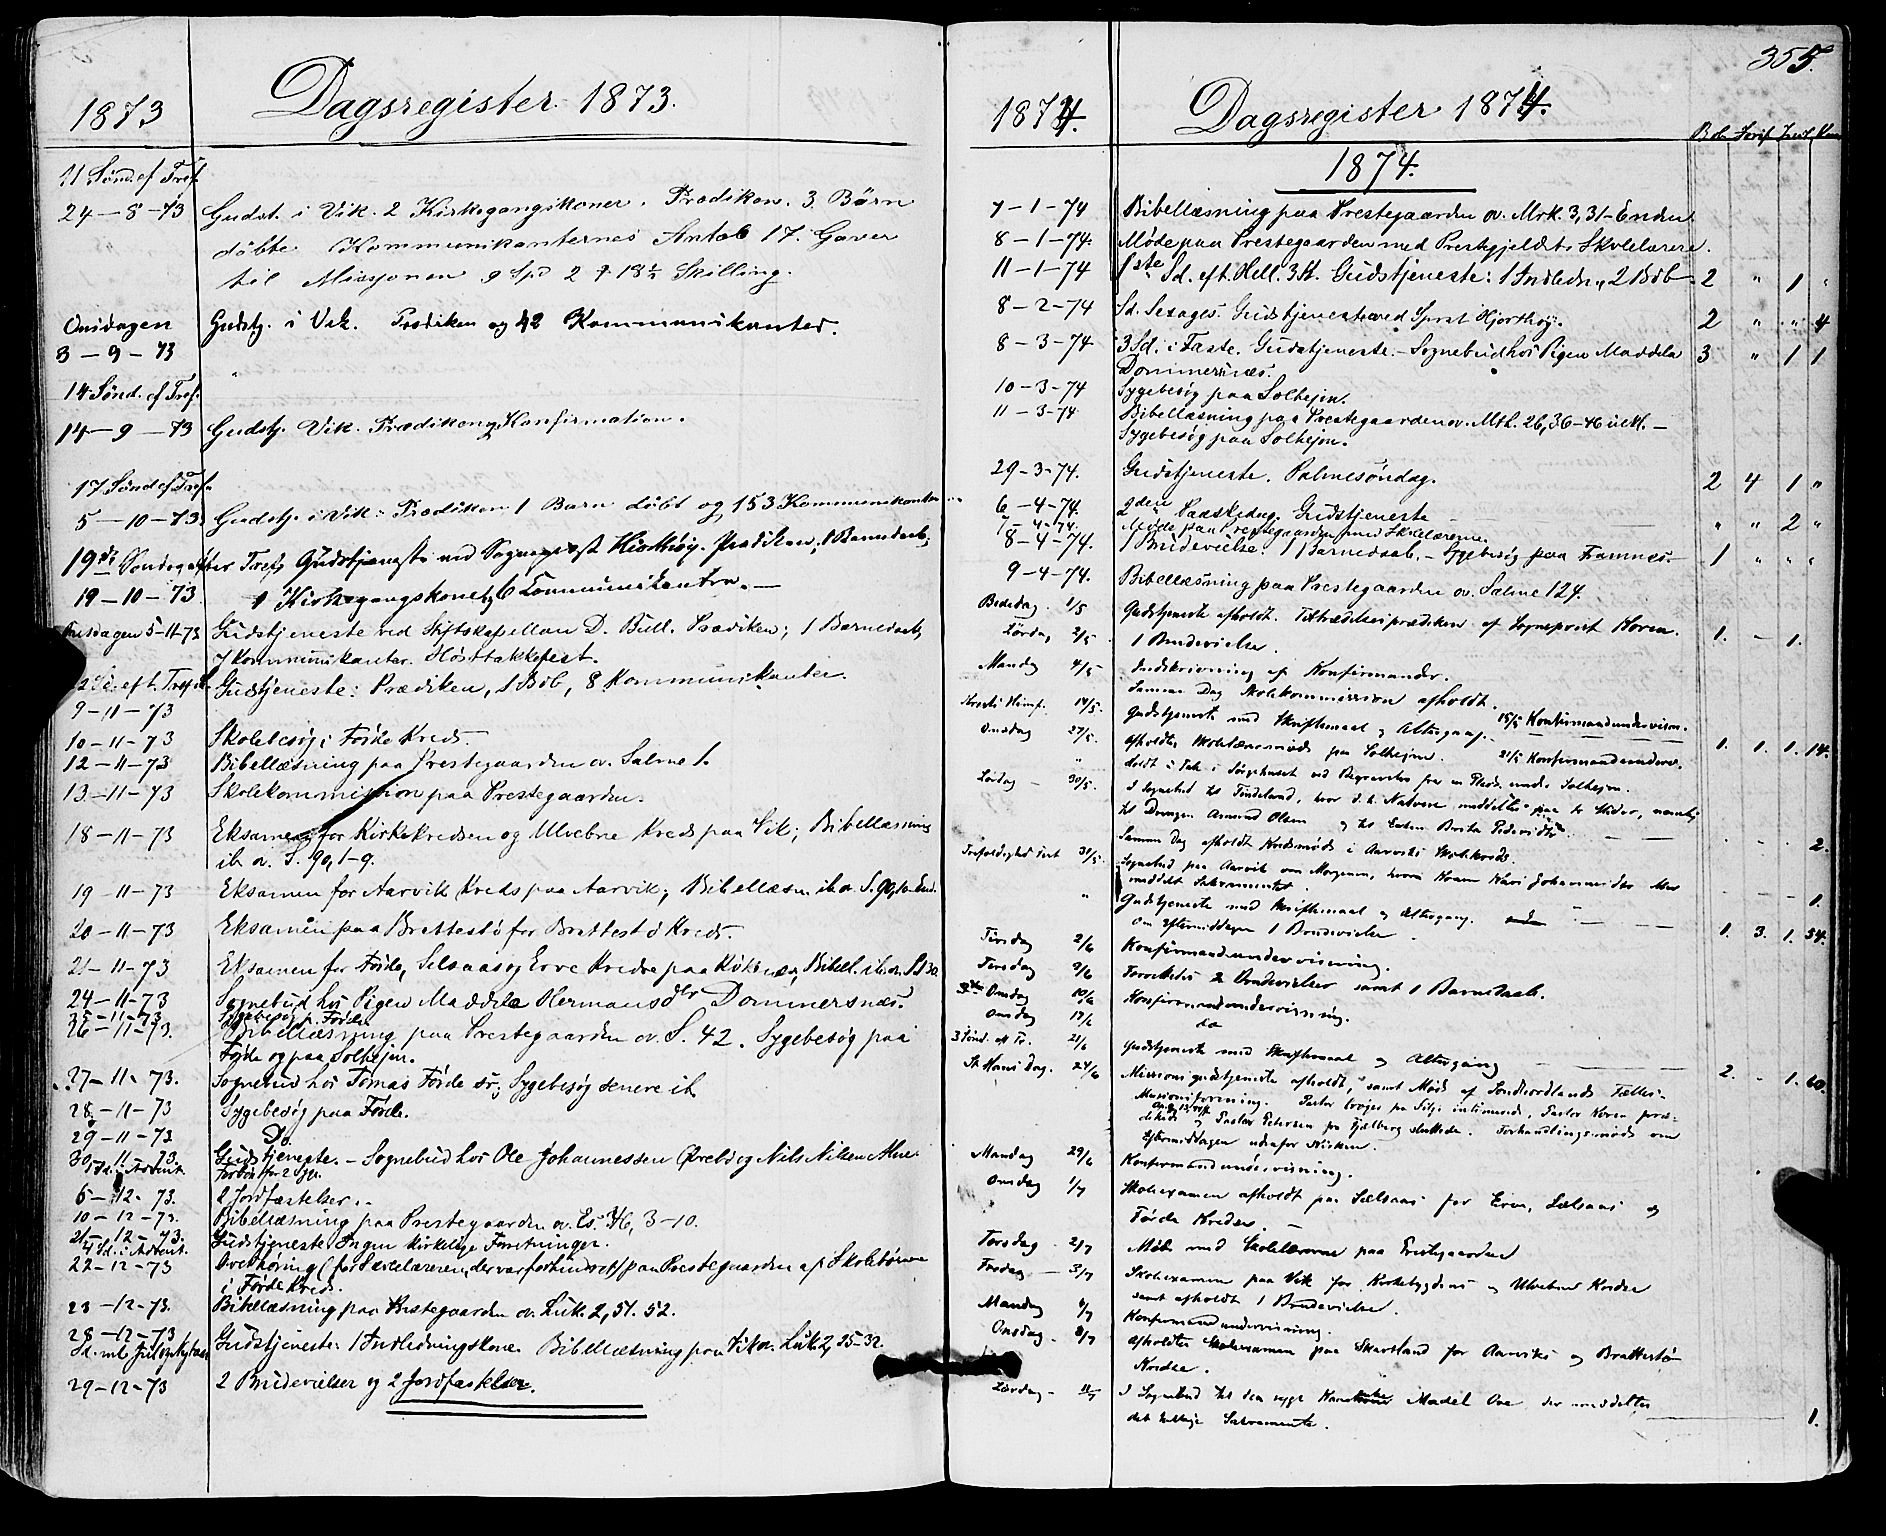 1873
Dagsregister 1873.
11 Sønd. ef Tref.
24-8-73 Gudst. i Vik. 2 Kirkegangskoner. Prædiken. 3 Börn
döbte. Kommunikanternes Antal 17. Gaver
til Missjonen 9 Spd 2 18½ Skilling.
Onsdagen Gudstj. i Vik. Prædiken og 42 Kommunikanter.
3-9-73
14 Sønd. ef Tref.
14-9-73 Gudstj. Vik. Prædiken og Konfirmation.
17 Sönd ef Tref.
5-10-73 Gudstj. i Vik. Prædiken 1 Barn döbt og 153 Kommunikanter
19de Söndag efter Tref. Gudstjeneste ved Sogneprest Hjorthöy. Prædiken, 1 Barnedaab,
19-10-73 1 Kirkegangskone, 6 Communikantere.
Onsdagen 5-11-73 Gudstjeneste ved Stiftskapellan D. Bull. Prædiken; 1 Barnedaab,
7 Kommunikanter. Høsttakkefest.
22 Sd. eft. Tref. Gudstjeneste: Prædiken, 1 Bdb, 8 Kommunikanter.
9-11-73
10-11-73 Skolebesøg i Førde Kreds.
12-11-73 Bibellæsning paa Prestegaarden ov. Salme 1.
13-11-73 Skolekommission paa Prestegaarden.
18-11-73 Eksamen for Kirkekredsen og Ulvebne Kreds paa Vik; Bibellæsning
ib. ov. S. 90, 1-9.
19-11-73 Eksamen for Aarvik Kreds paa Aarvik; Bibellæsn. ib. ov. S. 90, 10-End.
20-11-73 Eksamen paa Brattestø for Brattestø Kreds.
21-11-73 Eksamen for Førde, Selsaas og Erve Kredse paa Bibell. ib. ov. S.
24-11-73 Sognebud hos Pigen Maddela Hermansdtr Dommersnæs.
25-11-73 Sygebesøg p. Førde.
26-11-73. Bibellæsning paa Prestegaarden ov. S. 42. Sygebesøg paa
Førde og paa Solhejm.
27-11-73. Sognebud hos Tomas Førde sr; Sygebesøg senere ib.
28-11-73 Sygebesøg paa Førde.
29-11-73 Do.
30-11-73. Gudstjeneste. - Sognebud hos Ole Johannessen Øvrebø og Nils Nilsen
1 Sd. i Advent.
6-12-73. 2 Jordfæstelser.
10-12-73. Bibellæsning paa Prestegaarden ov. Es. 46, 3-10.
21-12-73. Gudstjeneste. Ingen kirkelige Forretninger.
4 Sd. i Advent.
22-12-73 Overhøring (for Skolelæreren, der var forhindret) paa Prestegaarden af Skolebørnene
i Førde Kreds.
23-12-73. Bibellæsning paa Prestegaarden ov. Luk. 2, 51. 52.
28-12-73 Gudstjeneste: 1 Indledningskone. Bibellæsning paa Vik ov. Luk. 2, 25-32.
Sd. ml. Jul og Nytaar
29-12-73 2 Brudevielser og 2 Jordfæstelser.
355.
1874.
Dagsregister 1874.
Bdb Skrift Indl. Kom
1874.
7-1-74 Bibellæsning paa Prestegaarden ov. Mrk. 3, 31-Enden
8-1-74. Møde paa Prestegaarden med Prestegjeldets Skolelærere.
11-1-74 1ste Sd. eft. Hell. 3 K. Gudstjeneste: 1 Indledn., 2 Bdb 2 " 1 "
8-2-74 Sd. Sexages. Gudstjeneste ved Sprst Hjorthøy. 2 " " 4
8-3-74 3 Sd. i Faste. Gudstjeneste. - Sognebud hos Pigen Maddela 3 " 1 1
Dommersnæs.
10-3-74 Sygebesøg paa Solhejm.
11-3-74 Bibellæsning paa Prestegaarden ov. Mth. 26, 36-46 inkl. -
Sygebesøg paa Solhejm.
29-3-74. Gudstjeneste. Palmesøndag. 2 4 1 "
6-4-74. 2den Paaskedag. Gudstjeneste " " 2 "
7-4-74. Møde paa Prestegaarden med Skolelærerne.
8-4-74. 1 Brudevielse. 1 Barnedaab. - Sygebesøg paa Framnes. 1 " " "
9-4-74. Bibellæsning paa Prestegaarden ov. Salme 124.
Bededag 1/5 Gudstjeneste afholdt. Tiltrædelsesprædiken af Sogneprest Koren. 1. - 1.
Lørdag 2/5 1 Brudevielse.
Mandag 4/5 Indskrivning af Konfirmander.
Samme Dag Skolekommission afholdt.
Kristi Himf. 14/5. Gudstjeneste med Skriftemaal og Altergang. 15/5 Konfirmandundervisn. 1. 1. 1. 14.
Onsdag 27/5. Afholdtes Skolelærermøde paa Solhejm. 21/5 Konfirmandunderv.
" Holdt i Tale i Sørgehuset ved Begravelse fra en Plads under Solhejm.
Lördag 30/5. I Sognebud til Tindeland, hvor d. h. Nadvere meddeltes paa to Steder, nemlig
til Drengen Amund Olsen og til Enken Brita Pedersdtr. 2.
Samme Dag afholdt Kredsmøde i Aarviks Skolekreds.
Trefoldighed Fest 31/5. Sognebud paa Aarvik om Morgenen, hvorn Konen Kari Johannesdtr blev
meddelt Sakramentet. 1.
" Gudstjeneste med Skriftemaal og Altergang. 1. 3. 1. 54.
Om Eftermiddagen 1 Brudevielse.
Tirsdag 2/6 Konfirmandundervisning.
Tirsdag 9/6 Forrettedes 2 Brudevielser samt 1 Barnedaab.
Onsdag 10/6 Konfirmandundervisning.
Onsdag 17/6 do
3 Sønd. eft Tr. 21/6 Gudstjeneste med Skriftemaal og Altergang 2. - 1. 60.
St Hans Dag. 24/6 Missionsgudstjeneste afholdt, samt Møde af Søndhordlands Fælles-
Missionsforening. Pastor fra intimerede, Pastor Koren præ-
dikede og Pastor Petersen fra Fjelberg sluttede. Forhandlingsmøde om
Eftermiddagen udenfor Kirken.
Mandag 29/6 Konfirmandundervisning.
Onsdag 1/7 Skolexamen afholdt paa Sælsaas for Erve, Sælsaas og
Førde Kredse.
Torsdag 2/7 Møde med Skolelærerne paa Prestegaarden
Fredag 3/7 Skolexamen paa Vik for Kirkebygdens og Ulvebne Kredse
samt afholdt 1 Brudevielse.
Mandag 6/7 Konfirmandundervisning.
Onsdag 8/7 Afholdtes Skolexamen paa Skartland for Aarviks og Brattestø
Kredse.
Lørdag 11/7 I Sognebud til den syge Madel Ove der meddeltes
det hellige Sakramente. 1.